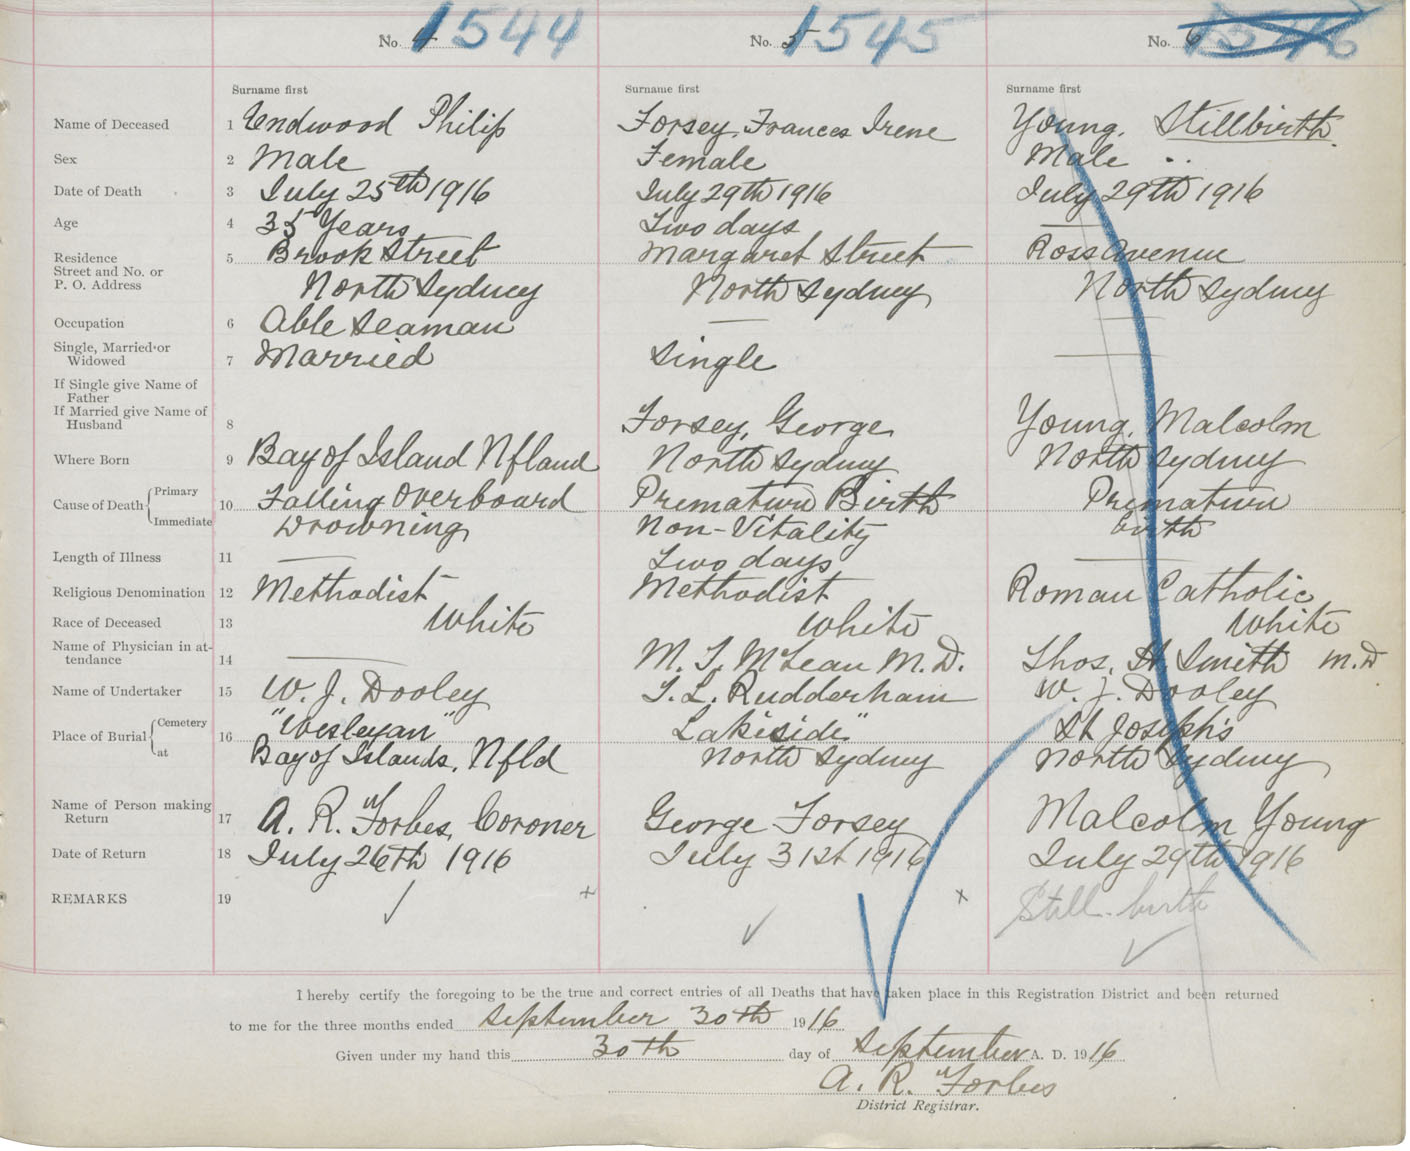 No. 4 1544
No. 5 1545
No. 6 1546
Surname first Surname first Surname first
Name of Deceased 1 Endwood Philip Forsey, Frances Irene Young, Stillbirth
Sex 2 Male Female Male
Date of Death 3 July 25th 1916 July 29th 1916 July 29th 1916
Age 4 35 Years Two days —
Residence 5 Brook Street Margaret Street Ross Avenue
Street and No. or
P. O. Address North Sydney North Sydney North Sydney
Occupation 6 Able Seaman — —
Single, Married or
Widowed 7 Married Single —
If Single give Name of
Father
If Married give Name of
Husband 8 Forsey, George Young, Malcolm
Where Born 9 Bay of Island Nfland North Sydney North Sydney
Cause of Death { Primary 10 Falling Overboard Premature Birth Premature
Immediate Drowning Non-Vitality birth
Length of Illness 11 — Two days —
Religious Denomination 12 Methodist Methodist Roman Catholic
Race of Deceased 13 White White White
Name of Physician in at-
tendance 14 — M. T. McLean M.D. Thos. St. Smith M.D
Name of Undertaker 15 W. J. Dooley T. L. Rudderham W. J. Dooley
Place of Burial { Cemetery 16 "Wesleyan" Lakeside" St Joseph's
at Bay of Islands, Nfld North Sydney North Sydney
Name of Person making
Return 17 A. R. Forbes, Coroner George Forsey Malcolm Young
Date of Return 18 July 26th 1916 July 31st 1916 July 29th 1916
REMARKS 19 ✓ + ✓ x Still-birth ✓
I hereby certify the foregoing to be the true and correct entries of all Deaths that have taken place in this Registration District and been returned
to me for the three months ended September 30th 1916
Given under my hand this 30th day of September A. D. 1916
A. R. Forbes
District Registrar.